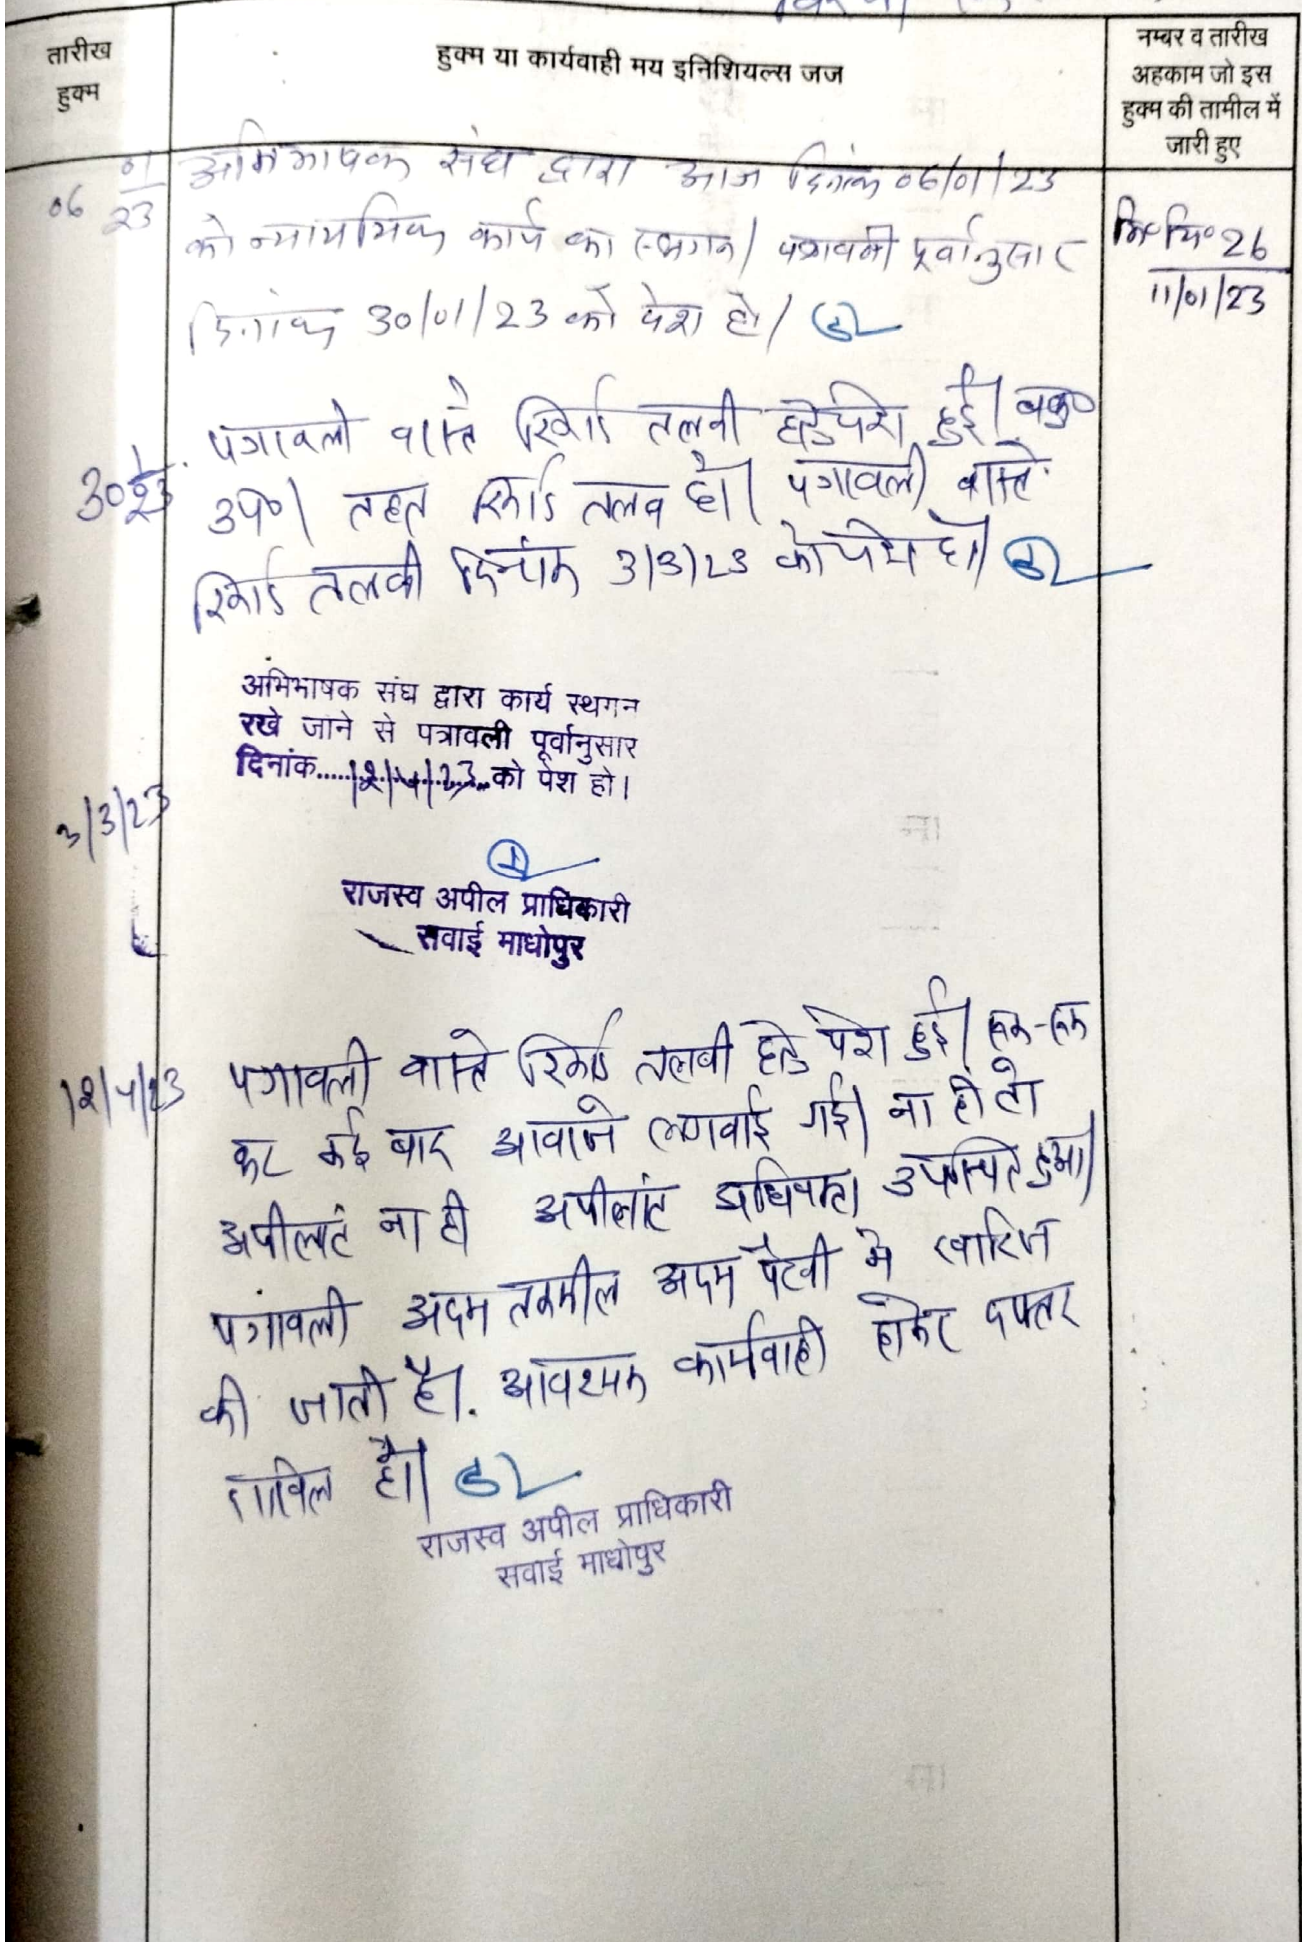 तारीख
हुक्म
हुक्म या कार्यवाही मय इनिशियल्स जज
नम्बर व तारीख
अहकाम जो इस
हुक्म की तामील में
जारी हुए
06 01/23
अभिभाषक संघ द्वारा आज दिनांक 06/01/23
को न्यायायिक कार्य का स्थगन। पत्रावली पूर्वानुसार
दिनांक 30/01/23 को पेश हो।
26
11/01/23
30/1/23
पत्रावली वास्ते रिकार्ड तलबी हेतु पेश हुई। वकु०
उप०। तहत रिकार्ड तलब हो। पत्रावली वास्ते
रिकार्ड तलबी दिनांक 3/3/23 को पेश हो।
3/3/23
अभिभाषक संघ द्वारा कार्य स्थगन
रखे जाने से पत्रावली पूर्वानुसार
दिनांक.....12/4/23...को पेश हो।
राजस्व अपील प्राधिकारी
सवाई माधोपुर
12/4/23
पत्रावली वास्ते रिकार्ड तलबी हेतु पेश हुई। एक-एक
कर कई बार आवाजे लगवाई गई। ना ही तो
अपीलांट ना ही अपीलांट अधिवक्ता उपस्थित हुआ।
पत्रावली अदम तकमील अदम पैरवी मे खारिज
की जाती है। आवश्यक कार्यवाही होकर दफ्तर
दाखिल हो।
राजस्व अपील प्राधिकारी
सवाई माधोपुर